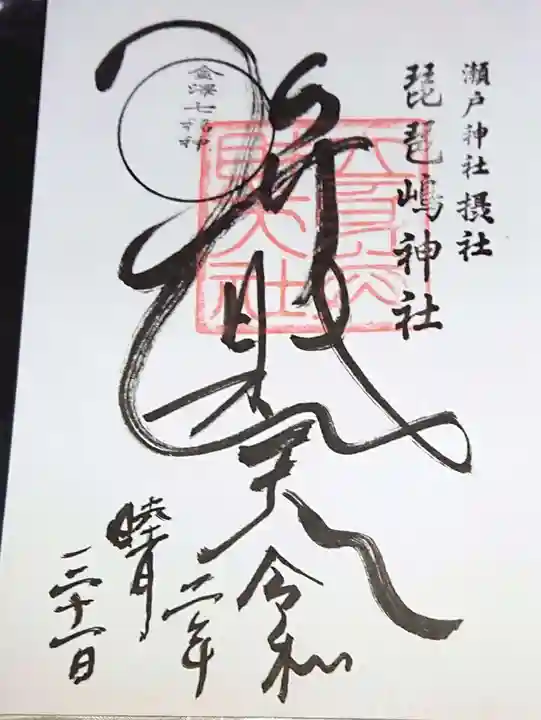 瀬戸神社摂社
琵琶嶋神社
弁財天
金澤七福神
令和
二年
睦月
三十一日